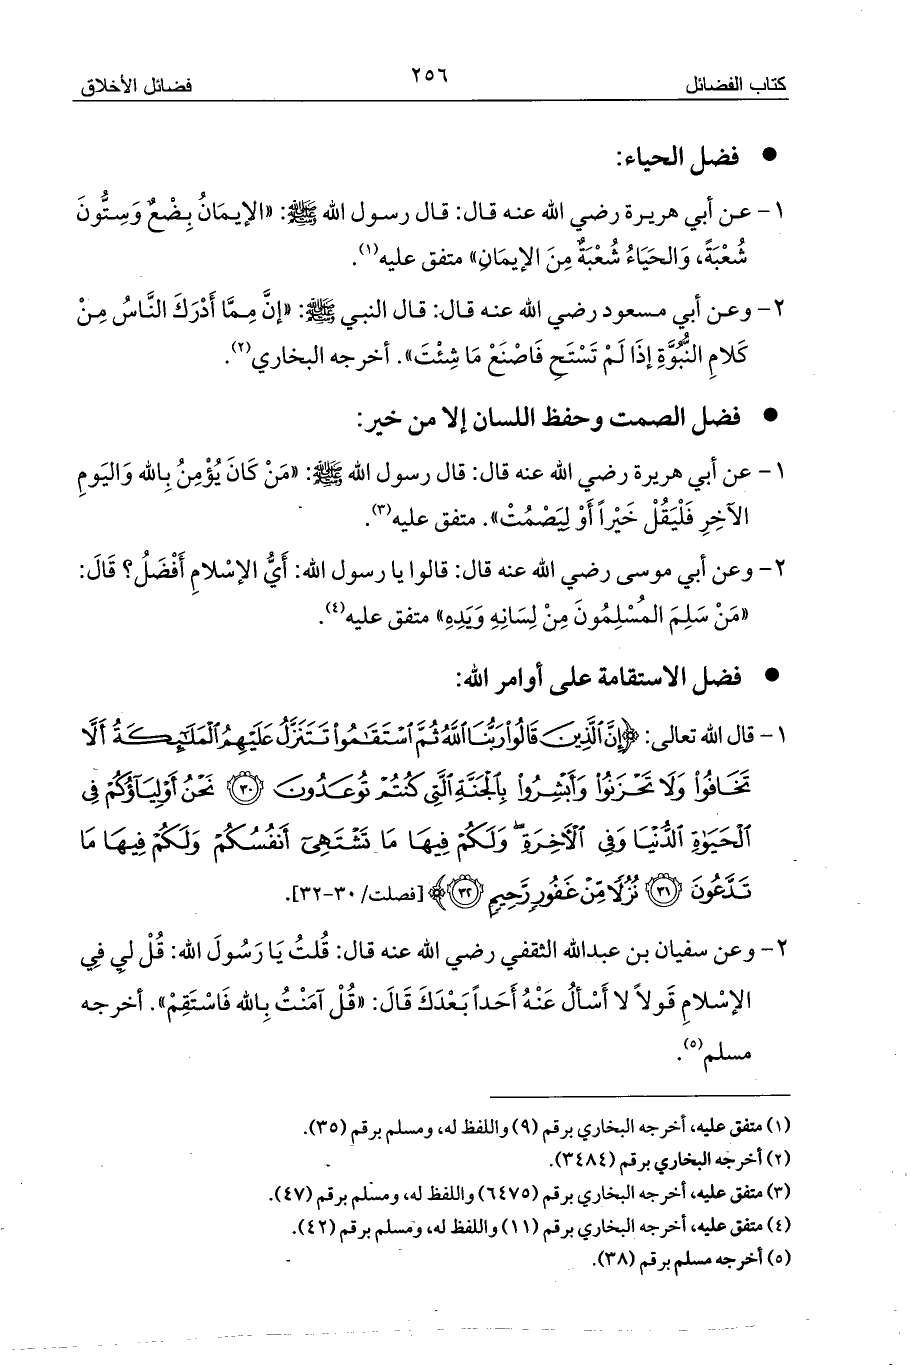 كتاب الفضائل ٢٥٦ فضائل الأخلاق
● فضل الحياء:
١- عن أبي هريرة رضي الله عنه قال: قال رسول الله ﷺ: «الإيمَانُ بِضْعٌ وَسِتُّونَ
شُعْبَةً، وَالحَيَاءُ شُعْبَةٌ مِنَ الإيمَانِ» متفق عليه(١).
٢- وعن أبي مسعود رضي الله عنه قال: قال النبي ﷺ: «إنَّ مِمَّا أَدْرَكَ النَّاسُ مِنْ
كَلامِ النُّبُوَّةِ إذَا لَمْ تَسْتَحِ فَاصْنَعْ مَا شِئْتَ». أخرجه البخاري(٢).
● فضل الصمت وحفظ اللسان إلا من خير:
١- عن أبي هريرة رضي الله عنه قال: قال رسول الله ﷺ: «مَنْ كَانَ يُؤْمِنُ بِالله وَاليَومِ
الآخِرِ فَلْيَقُلْ خَيْراً أَوْ لِيَصْمُتْ». متفق عليه(٣).
٢- وعن أبي موسى رضي الله عنه قال: قالوا يا رسول الله: أَيُّ الإسْلامِ أَفْضَلُ؟ قَالَ:
«مَنْ سَلِمَ المُسْلِمُونَ مِنْ لِسَانِهِ وَيَدِهِ» متفق عليه(٤).
● فضل الاستقامة على أوامر الله:
١- قال الله تعالى: ﴿إِنَّ ٱلَّذِينَ قَالُوا۟ رَبُّنَا ٱللَّهُ ثُمَّ ٱسْتَقَٰمُوا۟ تَتَنَزَّلُ عَلَيْهِمُ ٱلْمَلَٰٓئِكَةُ أَلَّا
تَخَافُوا۟ وَلَا تَحْزَنُوا۟ وَأَبْشِرُوا۟ بِٱلْجَنَّةِ ٱلَّتِى كُنتُمْ تُوعَدُونَ ٣٠ نَحْنُ أَوْلِيَآؤُكُمْ فِى
ٱلْحَيَوٰةِ ٱلدُّنْيَا وَفِى ٱلْءَاخِرَةِ ۖ وَلَكُمْ فِيهَا مَا تَشْتَهِىٓ أَنفُسُكُمْ وَلَكُمْ فِيهَا مَا
تَدَّعُونَ ٣١ نُزُلًا مِّنْ غَفُورٍ رَّحِيمٍ ٣٢﴾ [فصلت/ ٣٠-٣٢].
٢- وعن سفيان بن عبدالله الثقفي رضي الله عنه قال: قُلتُ يَا رَسُولَ الله: قُلْ لِي فِي
الإسْلامِ قَولاً لا أَسْأَلُ عَنْهُ أَحَداً بَعْدَكَ قَالَ: «قُلْ آمَنْتُ بِالله فَاسْتَقِمْ». أخرجه
مسلم(٥).
(١) متفق عليه، أخرجه البخاري برقم (٩) واللفظ له، ومسلم برقم (٣٥).
(٢) أخرجه البخاري برقم (٣٤٨٤).
(٣) متفق عليه، أخرجه البخاري برقم (٦٤٧٥) واللفظ له، ومسلم برقم (٤٧).
(٤) متفق عليه، أخرجه البخاري برقم (١١) واللفظ له، ومسلم برقم (٤٢).
(٥) أخرجه مسلم برقم (٣٨).